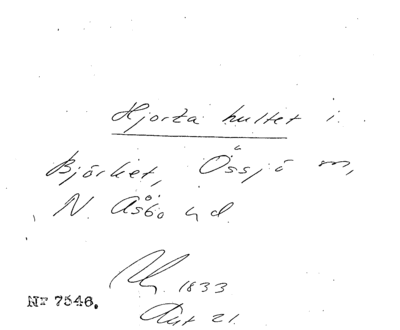 Hjorta hultet i
Björket, Össjö m,
N. Åsbo hd.
1833
21.
Nr 7546.